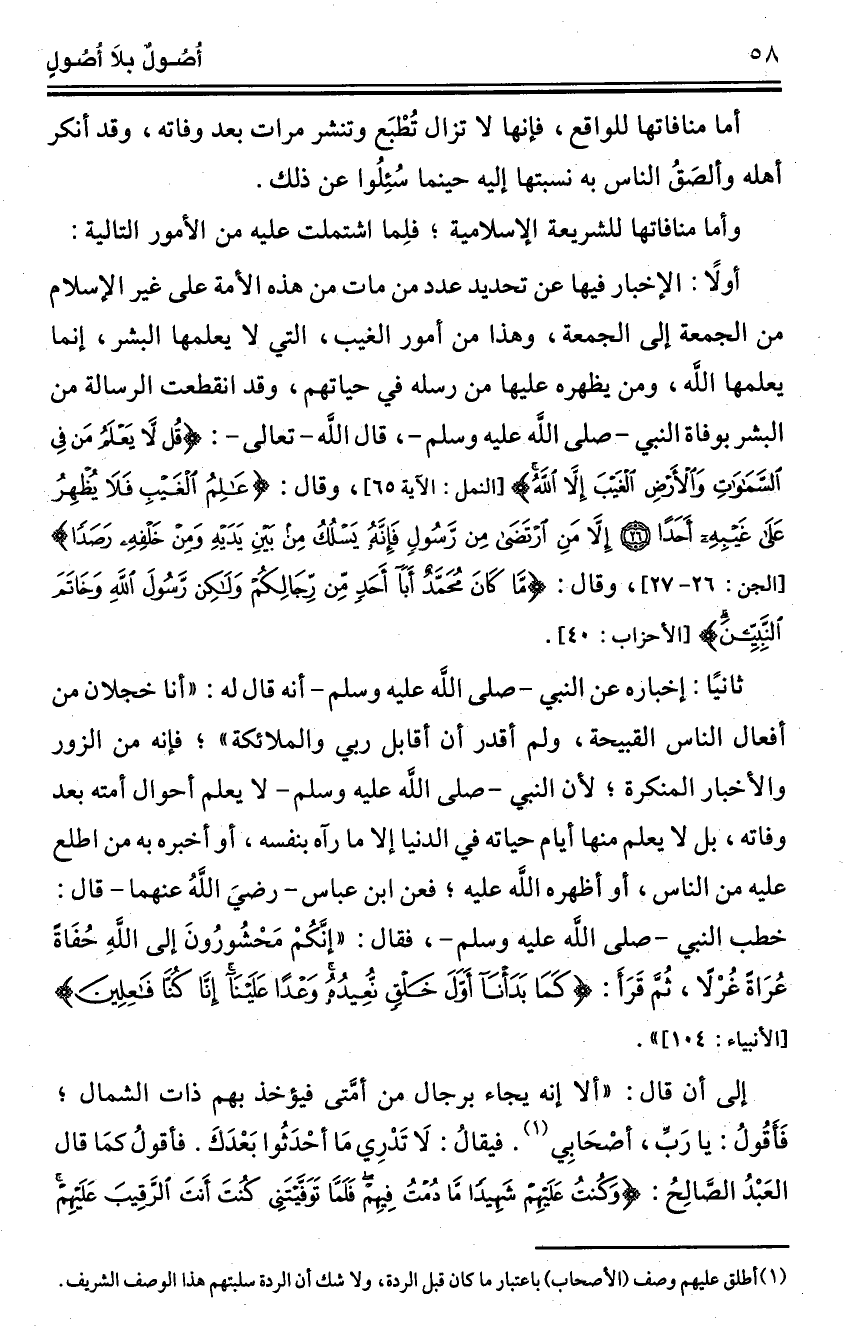 ٥٨
أُصُـولٌ بِلَا أُصُولٍ
أما منافاتها للواقع ، فإنها لا تزال تُطْبَع وتنشر مرات بعد وفاته ، وقد أنكر
أهله وألصَقُ الناس به نسبتها إليه حينما سُئِلُوا عن ذلك .
وأما منافاتها للشريعة الإسلامية ؛ فلِما اشتملت عليه من الأمور التالية :
أولًا : الإخبار فيها عن تحديد عدد من مات من هذه الأمة على غير الإسلام
من الجمعة إلى الجمعة ، وهذا من أمور الغيب ، التي لا يعلمها البشر ، إنما
يعلمها اللَّه ، ومن يظهره عليها من رسله في حياتهم ، وقد انقطعت الرسالة من
البشر بوفاة النبي -صلى اللَّه عليه وسلم- ، قال اللَّه -تعالى- : ﴿قُل لَّا يَعْلَمُ مَن فِي
ٱلسَّمَٰوَٰتِ وَٱلْأَرْضِ ٱلْغَيْبَ إِلَّا ٱللَّهُۚ﴾ [النمل : الآية ٦٥] ، وقال : ﴿عَٰلِمُ ٱلْغَيْبِ فَلَا يُظْهِرُ
عَلَىٰ غَيْبِهِۦٓ أَحَدًا ۝٢٦ إِلَّا مَنِ ٱرْتَضَىٰ مِن رَّسُولٍ فَإِنَّهُۥ يَسْلُكُ مِنۢ بَيْنِ يَدَيْهِ وَمِنْ خَلْفِهِۦ رَصَدًا﴾
[الجن : ٢٦-٢٧] ، وقال : ﴿مَّا كَانَ مُحَمَّدٌ أَبَآ أَحَدٍ مِّن رِّجَالِكُمْ وَلَٰكِن رَّسُولَ ٱللَّهِ وَخَاتَمَ
ٱلنَّبِيِّـۧنَۗ﴾ [الأحزاب : ٤٠] .
ثانيًا : إخباره عن النبي -صلى اللَّه عليه وسلم- أنه قال له : «أنا خجلان من
أفعال الناس القبيحة ، ولم أقدر أن أقابل ربي والملائكة» ؛ فإنه من الزور
والأخبار المنكرة ؛ لأن النبي -صلى اللَّه عليه وسلم- لا يعلم أحوال أمته بعد
وفاته ، بل لا يعلم منها أيام حياته في الدنيا إلا ما رآه بنفسه ، أو أخبره به من اطلع
عليه من الناس ، أو أظهره اللَّه عليه ؛ فعن ابن عباس -رضيَ اللَّهُ عنهما- قال :
خطب النبي -صلى اللَّه عليه وسلم- ، فقال : «إنَّكُمْ مَحْشُورُونَ إلى اللَّهِ حُفَاةً
عُرَاةً غُرْلًا ، ثُمَّ قَرَأَ : ﴿كَمَا بَدَأْنَآ أَوَّلَ خَلْقٍ نُّعِيدُهُۥۚ وَعْدًا عَلَيْنَآۚ إِنَّا كُنَّا فَٰعِلِينَ﴾
[الأنبياء : ١٠٤]» .
إلى أن قال : «ألا إنه يجاء برجال من أمَّتى فيؤخذ بهم ذات الشمال ؛
فَأَقُولُ : يا رَبِّ ، أصْحَابِي(١) . فيقالُ : لَا تَدْرِي مَا أحْدَثُوا بَعْدَكَ . فأقولُ كمَا قال
العَبْدُ الصَّالِحُ : ﴿وَكُنتُ عَلَيْهِمْ شَهِيدًا مَّا دُمْتُ فِيهِمْۖ فَلَمَّا تَوَفَّيْتَنِي كُنتَ أَنتَ ٱلرَّقِيبَ عَلَيْهِمْۚ
(١) أطلق عليهم وصف (الأصحاب) باعتبار ما كان قبل الردة ، ولا شك أن الردة سلبتهم هذا الوصف الشريف .